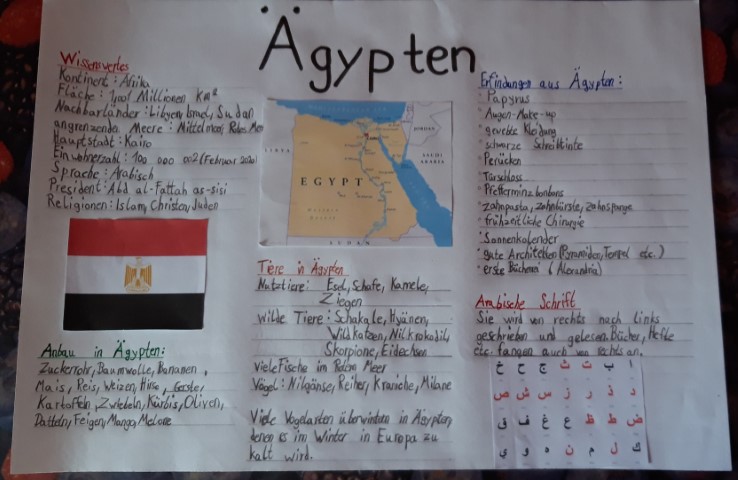 Ägypten
Wissenswertes
Kontinent: Afrika
Fläche: 1,001 Millionen km²
Nachbarländer: Libyen, Israel, Sudan
angrenzende Meere: Mittelmeer, Rotes Meer
Hauptstadt: Kairo
Einwohnerzahl: 100 000 002 (Februar 2020)
Sprache: Arabisch
Präsident: Abd al-Fattah as-sisi
Religionen: Islam, Christen, Juden
Anbau in Ägypten:
Zuckerrohr, Baumwolle, Bananen,
Mais, Reis, Weizen, Hirse, Gerste,
Kartoffeln, Zwiebeln, Kürbis, Oliven,
Datteln, Feigen, Mango, Melone
LIBYA
EGYPT
JORDAN
SAUDI
ARABIA
SUDAN
Tiere in Ägypten
Nutztiere: Esel, Schafe, Kamele,
Ziegen
wilde Tiere: Schakale, Hyänen,
Wildkatzen, Nilkrokodil,
Skorpione, Eidechsen
viele Fische im Roten Meer
Vögel: Nilgänse, Reiher, Kraniche, Milane
Viele Vogelarten überwintern in Ägypten,
denen es im Winter in Europa zu
kalt wird.
Erfindungen aus Ägypten:
Papyrus
Augen-Make-up
gewebte Kleidung
schwarze Schreibtinte
Perücken
Türschloss
Pfefferminzbonbons
Zahnpasta, Zahnbürste, Zahnspange
frühzeitliche Chirurgie
Sonnenkalender
gute Architekten (Pyramiden, Tempel etc.)
erste Bücherei (Alexandria)
Arabische Schrift
Sie wird von rechts nach links
geschrieben und gelesen. Bücher, Hefte
etc. fangen auch von rechts an.
ا ب ت ث ج ح خ
د ذ ر ز س ش ص
ض ط ظ ع غ ف ق
ك ل م ن ه و ي